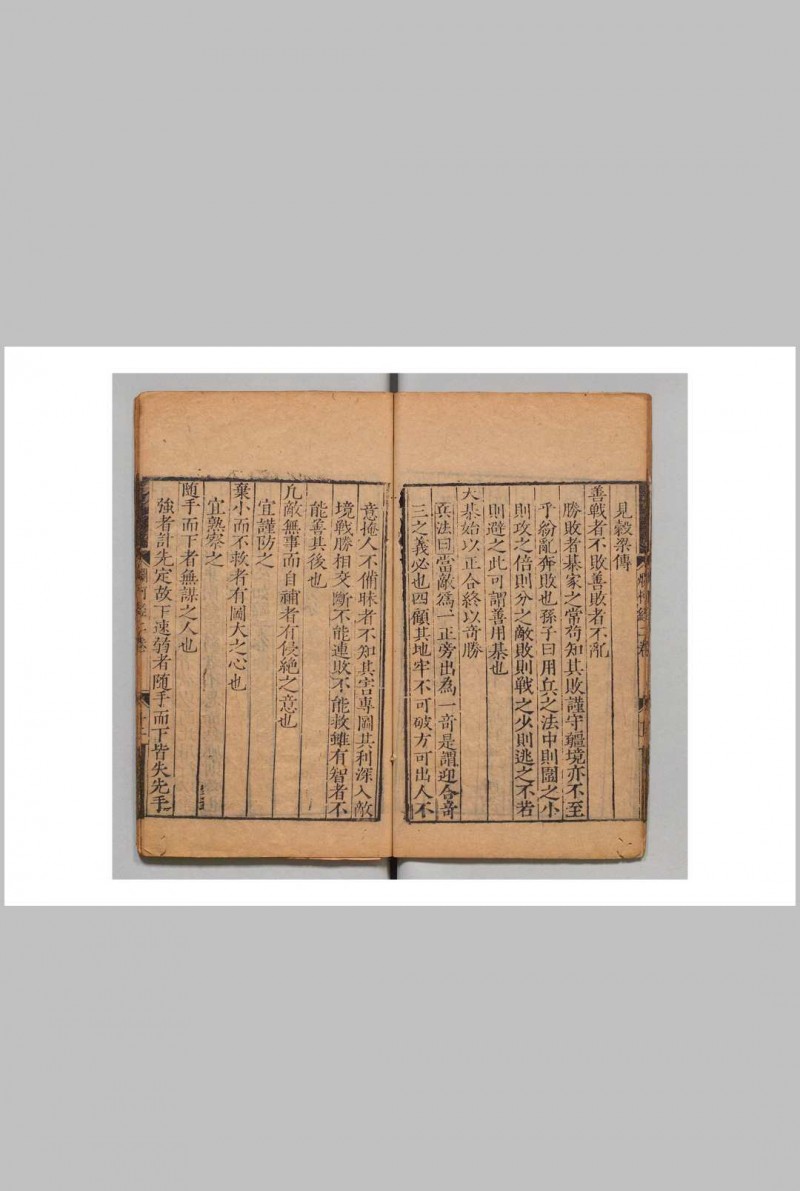 見穀梁傳
善戰者不敗善敗者不亂
勝敗者棊家之常苟知其敗謹守疆境亦不至
乎紛亂奔敗也孫子曰用兵之法中則圍之小
則攻之倍則分之敵敗則戰之少則逃之不若
則避之此可謂善用棊也
夫棊始以正合終以奇勝
兵法曰當敵爲一正旁出為一奇是謂迎合竒
三之義必也四顧其地牢不可破方可出人不
意掩人不備昧者不知其害專圖其利深入敵
境戰勝相交斷不能連敗不能救雖有智者不
能善其後也
凡敵無事而自補者有侵絶之意也
宜謹防之
棄小而不救者有圖大之心也
宜熟察之
随手而下者無謀之人也
強者計先定故下速弱者随手而下皆失先手